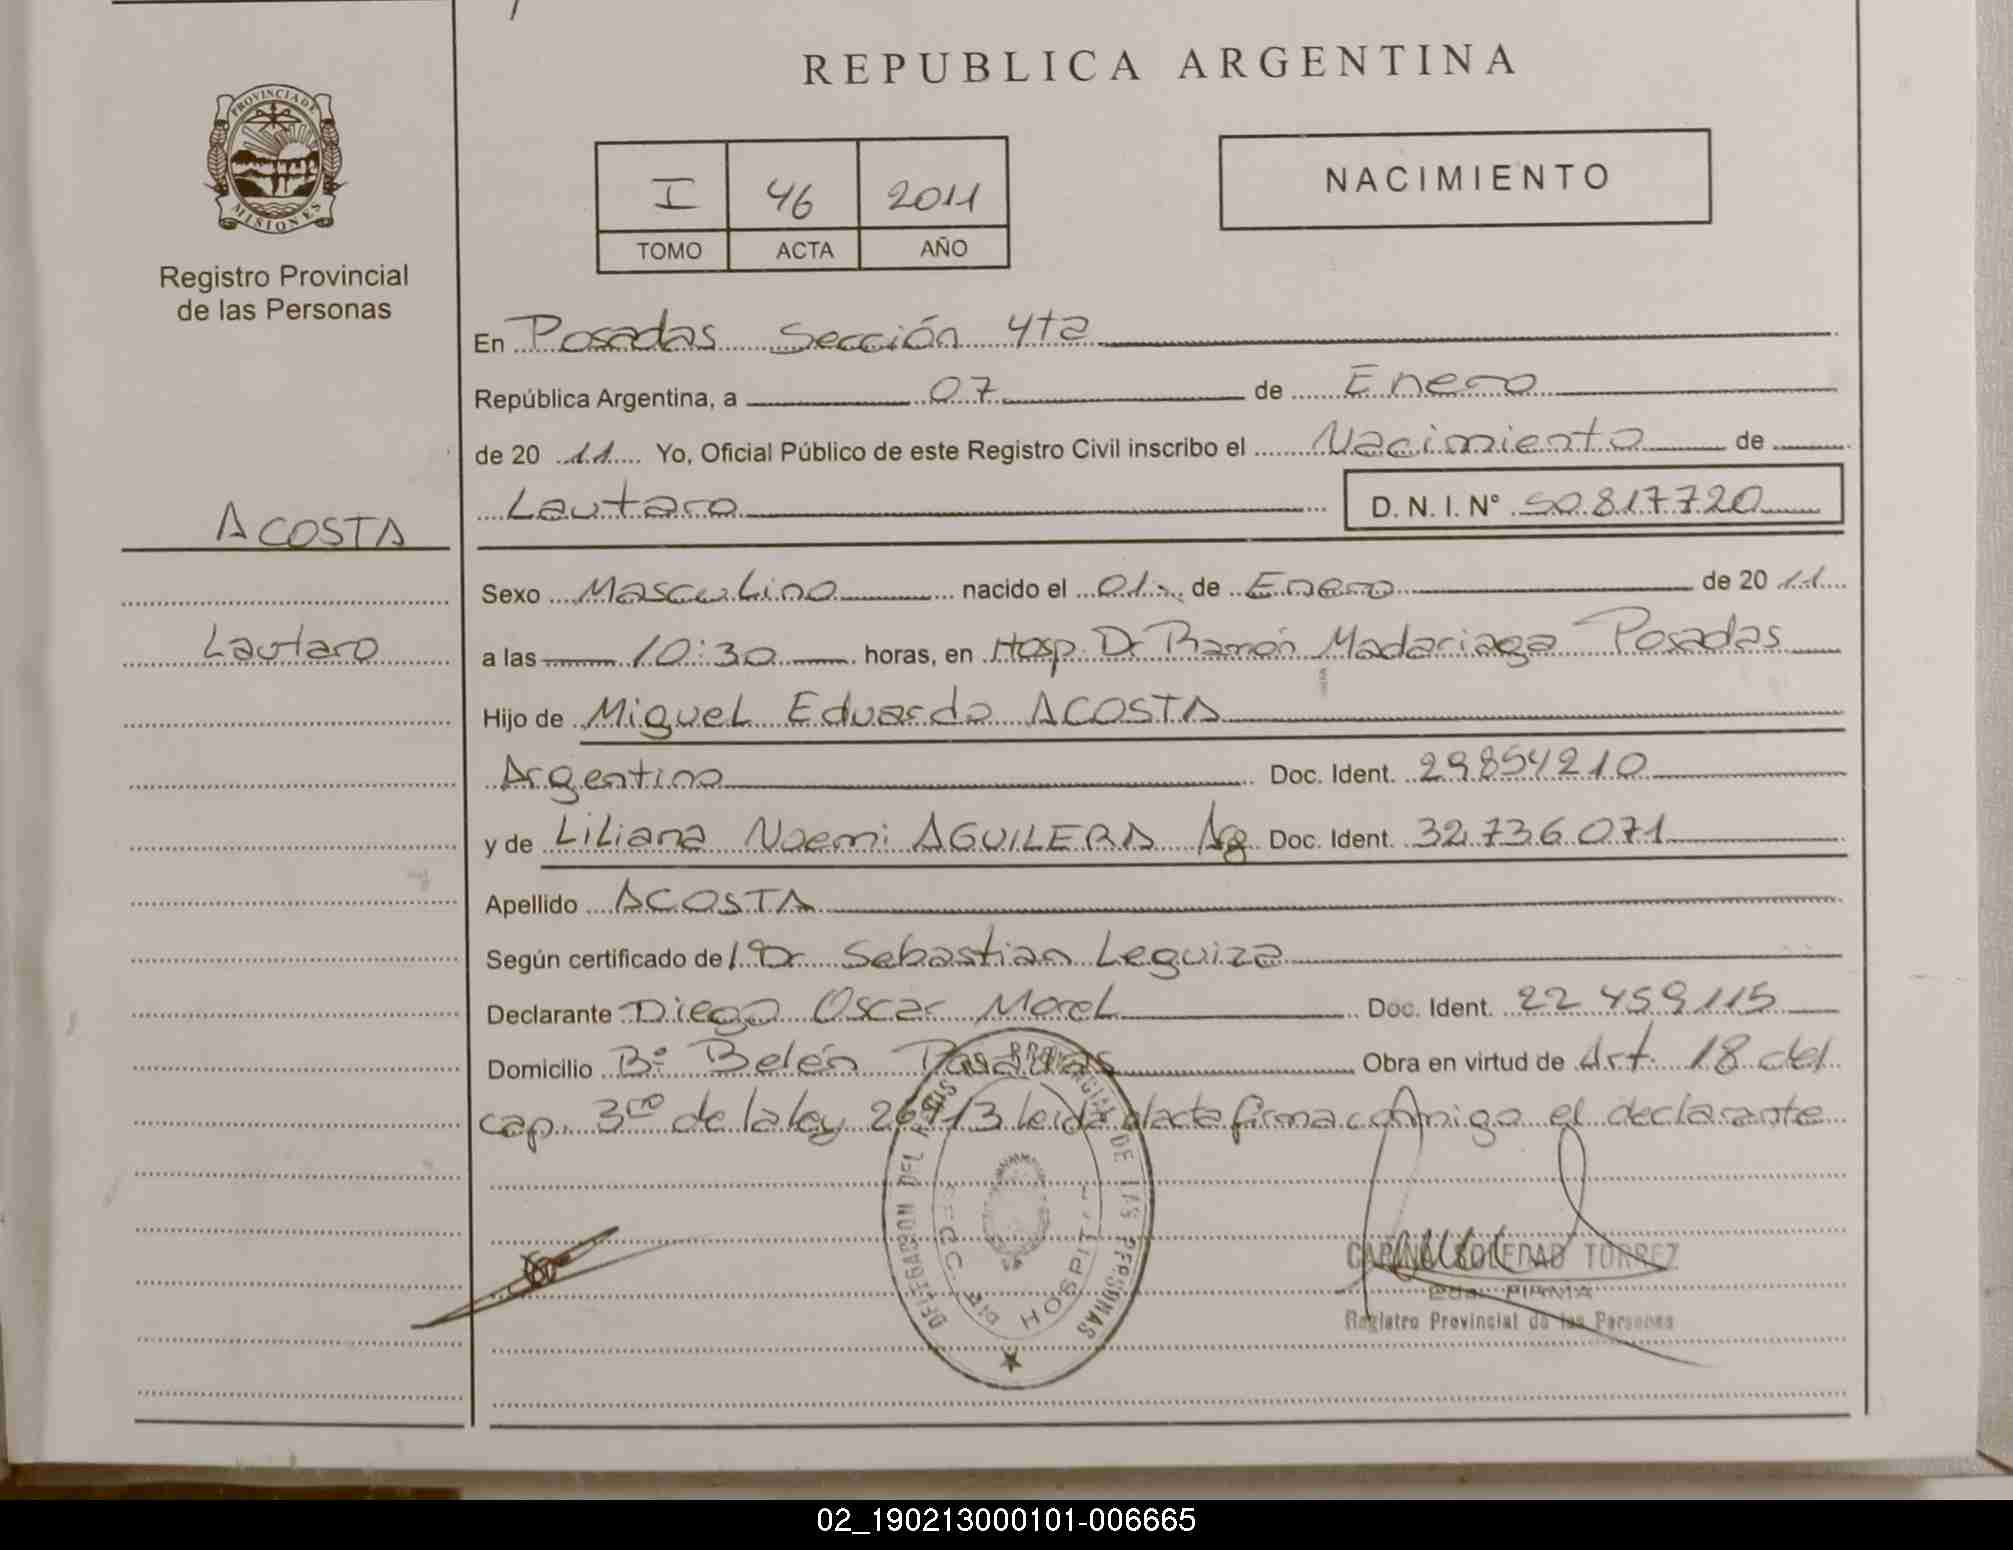 REPUBLICA ARGENTINA
PROVINCIA DE
MISIONES
Registro Provincial
de las Personas
I 46 2011
TOMO ACTA AÑO
NACIMIENTO
En Posadas Sección 4ta
República Argentina, a 07 de Enero
de 20 11 Yo, Oficial Público de este Registro Civil inscribo el Nacimiento de
Lautaro D. N. I. N° 50.817.720
ACOSTA
Lautaro
Sexo Masculino nacido el 01 de Enero de 20 11
a las 10:30 horas, en Hosp. Dr Ramón Madariaga Posadas
Hijo de Miguel Eduardo ACOSTA
Argentino Doc. Ident. 29854210
y de Liliana Noemi AGUILERA Arg Doc. Ident. 32.736.071
Apellido ACOSTA
Según certificado de l Dr Sebastian Leguiza
Declarante Diego Oscar Morel Doc. Ident. 22 459 115
Domicilio B° Belén Posadas Obra en virtud de Art. 18 del
cap. 3ro de la ley 26413 leida el acta firma conmigo el declarante
DELEGACION DEL REGISTRO PROVINCIAL DE LAS PERSONAS
SECC. 4ta HOSPITAL
SOLEDAD TORREZ
FIRMA
Registro Provincial de las Personas
02_190213000101-006665